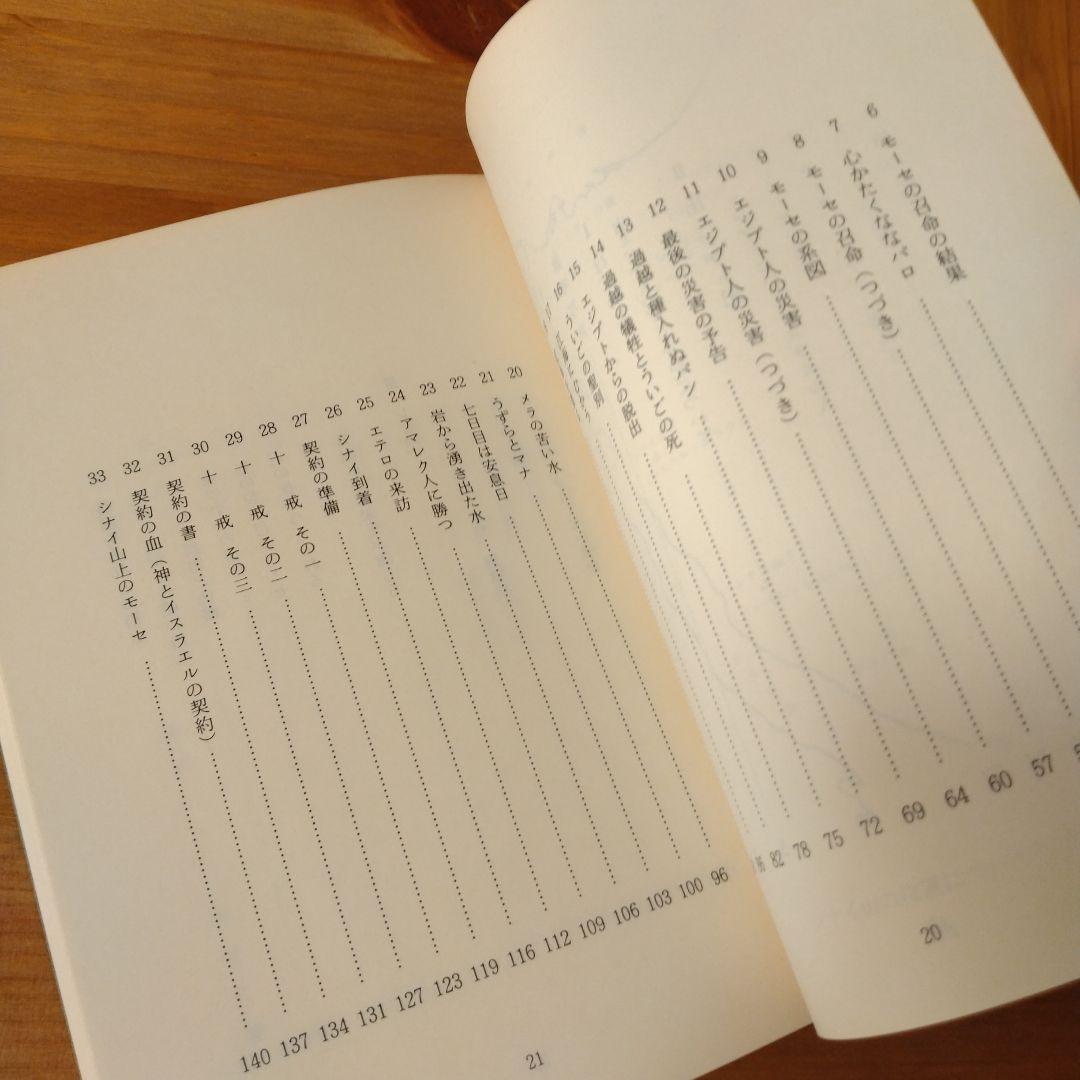 6 モーセの召命の結果
7 心かたくななパロ 57
8 モーセの召命（つづき） 60
9 モーセの系図 64
10 エジプト人の災害 69
11 エジプト人の災害（つづき） 72
12 最後の災害の予告 75
13 過越と種入れぬパン 78
14 過越の犠牲とういごの死 82
15 エジプトからの脱出 86
16 ういごの聖別
17
20
20 メラの苦い水 96
21 うずらとマナ 100
22 七日目は安息日 103
23 岩から湧き出た水 106
24 アマレク人に勝つ 109
25 エテロの来訪 112
26 シナイ到着 116
27 契約の準備 119
28 十戒 その一 123
29 十戒 その二 127
30 十戒 その三 131
31 契約の書 134
32 契約の血（神とイスラエルの契約） 137
33 シナイ山上のモーセ 140
21